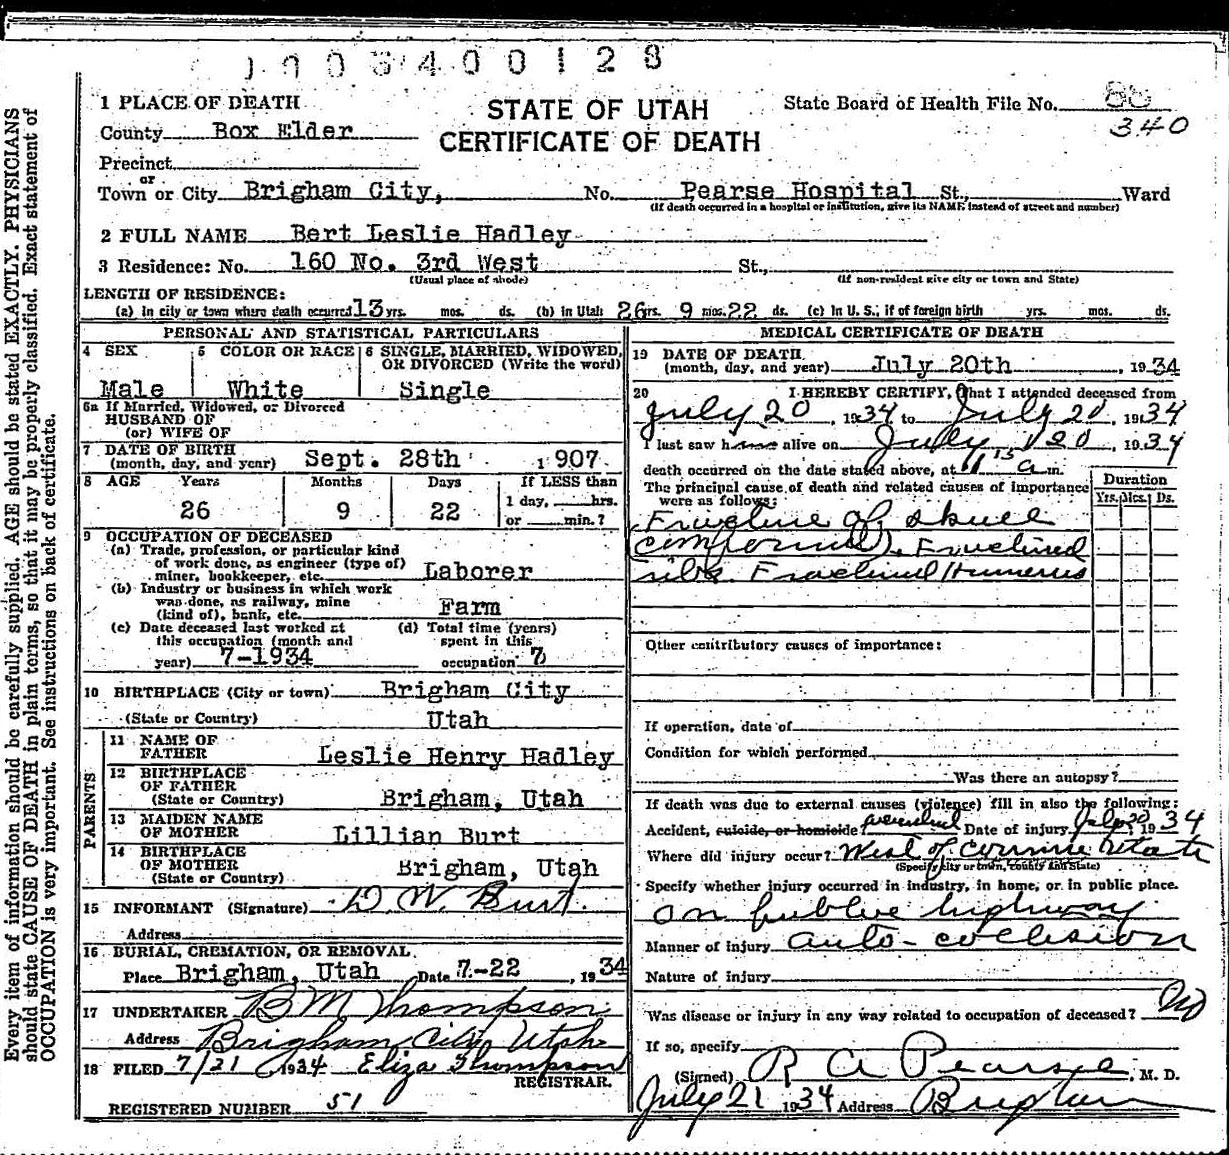 1003400128
1 PLACE OF DEATH
STATE OF UTAH
CERTIFICATE OF DEATH
State Board of Health File No. 88
340
County Box Elder
Precinct
or
Town or City Brigham City, No. Pearse Hospital St., Ward
(If death occurred in a hospital or institution, give its NAME instead of street and number)
2 FULL NAME Bert Leslie Hadley
3 Residence: No. 160 No. 3rd West St.,
(Usual place of abode) (If non-resident give city or town and State)
LENGTH OF RESIDENCE:
(a) In city or town where death occurred 13 yrs. mos. ds. (b) in Utah 26 yrs. 9 mos. 22 ds. (c) In U. S., if of foreign birth yrs. mos. ds.
PERSONAL AND STATISTICAL PARTICULARS
4 SEX
Male
5 COLOR OR RACE
White
6 SINGLE, MARRIED, WIDOWED,
OR DIVORCED (Write the word)
Single
6a If Married, Widowed, or Divorced
HUSBAND OF
(or) WIFE OF
7 DATE OF BIRTH
(month, day, and year) Sept. 28th 1907
8 AGE Years Months Days If LESS than
1 day, hrs.
26 9 22 or min.?
9 OCCUPATION OF DECEASED
(a) Trade, profession, or particular kind
of work done, as engineer (type of)
miner, bookkeeper, etc. Laborer
(b) Industry or business in which work
was done, as railway, mine
(kind of), bank, etc. Farm
(c) Date deceased last worked at
this occupation (month and
year) 7-1934
(d) Total time (years)
spent in this
occupation 7
10 BIRTHPLACE (City or town) Brigham City
(State or Country) Utah
PARENTS
11 NAME OF
FATHER Leslie Henry Hadley
12 BIRTHPLACE
OF FATHER
(State or Country) Brigham, Utah
13 MAIDEN NAME
OF MOTHER Lillian Burt
14 BIRTHPLACE
OF MOTHER
(State or Country) Brigham, Utah
15 INFORMANT (Signature) D. W. Burt.
Address
16 BURIAL, CREMATION, OR REMOVAL
Place Brigham, Utah Date 7-22, 1934
17 UNDERTAKER B M Thompson
Address Brigham City Utah
18 FILED 7/21 1934 Eliza Thompson
REGISTRAR.
REGISTERED NUMBER 51
MEDICAL CERTIFICATE OF DEATH
19 DATE OF DEATH
(month, day, and year) July 20th, 1934
20 I HEREBY CERTIFY, That I attended deceased from
July 20, 1934 to July 20, 1934
I last saw h alive on July 20, 1934
death occurred on the date stated above, at 11 15 a m.
The principal cause of death and related causes of importance
were as follows:
Duration
Yrs. Mos. Ds.
Fracture of skull
(compound). Fractured
ribs. Fractured Humerus
Other contributory causes of importance:
If operation, date of
Condition for which performed
Was there an autopsy?
If death was due to external causes (violence) fill in also the following:
Accident, suicide, or homicide? accidental Date of injury July 20, 1934
Where did injury occur? West of Corinne Utah
(Specify city or town, county and State)
Specify whether injury occurred in industry, in home, or in public place.
On public highway
Manner of injury auto-collision
Nature of injury
Was disease or injury in any way related to occupation of deceased? No
If so, specify
(Signed) R A Pearse, M. D.
July 21 1934 Address Brigham
Every item of information should be carefully supplied. AGE should be stated EXACTLY. PHYSICIANS
should state CAUSE OF DEATH in plain terms, so that it may be properly classified. Exact statement of
OCCUPATION is very important. See instructions on back of certificate.